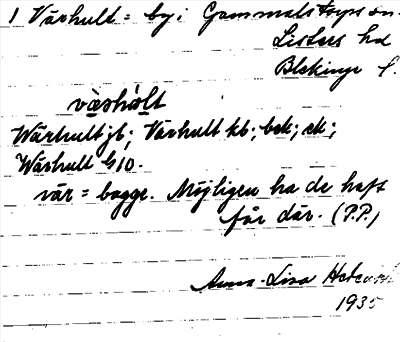 1 Värhult = by i Gammalstorps sn.
Listers hd
Blekinge l.
væ̱shu̱lt
Wärhult jb; Värhult kb; bek; ek;
Wärhult G10.
vär = bagge. Möjligen ha de haft
får där. (P.P.)
Anna-Lisa
1935